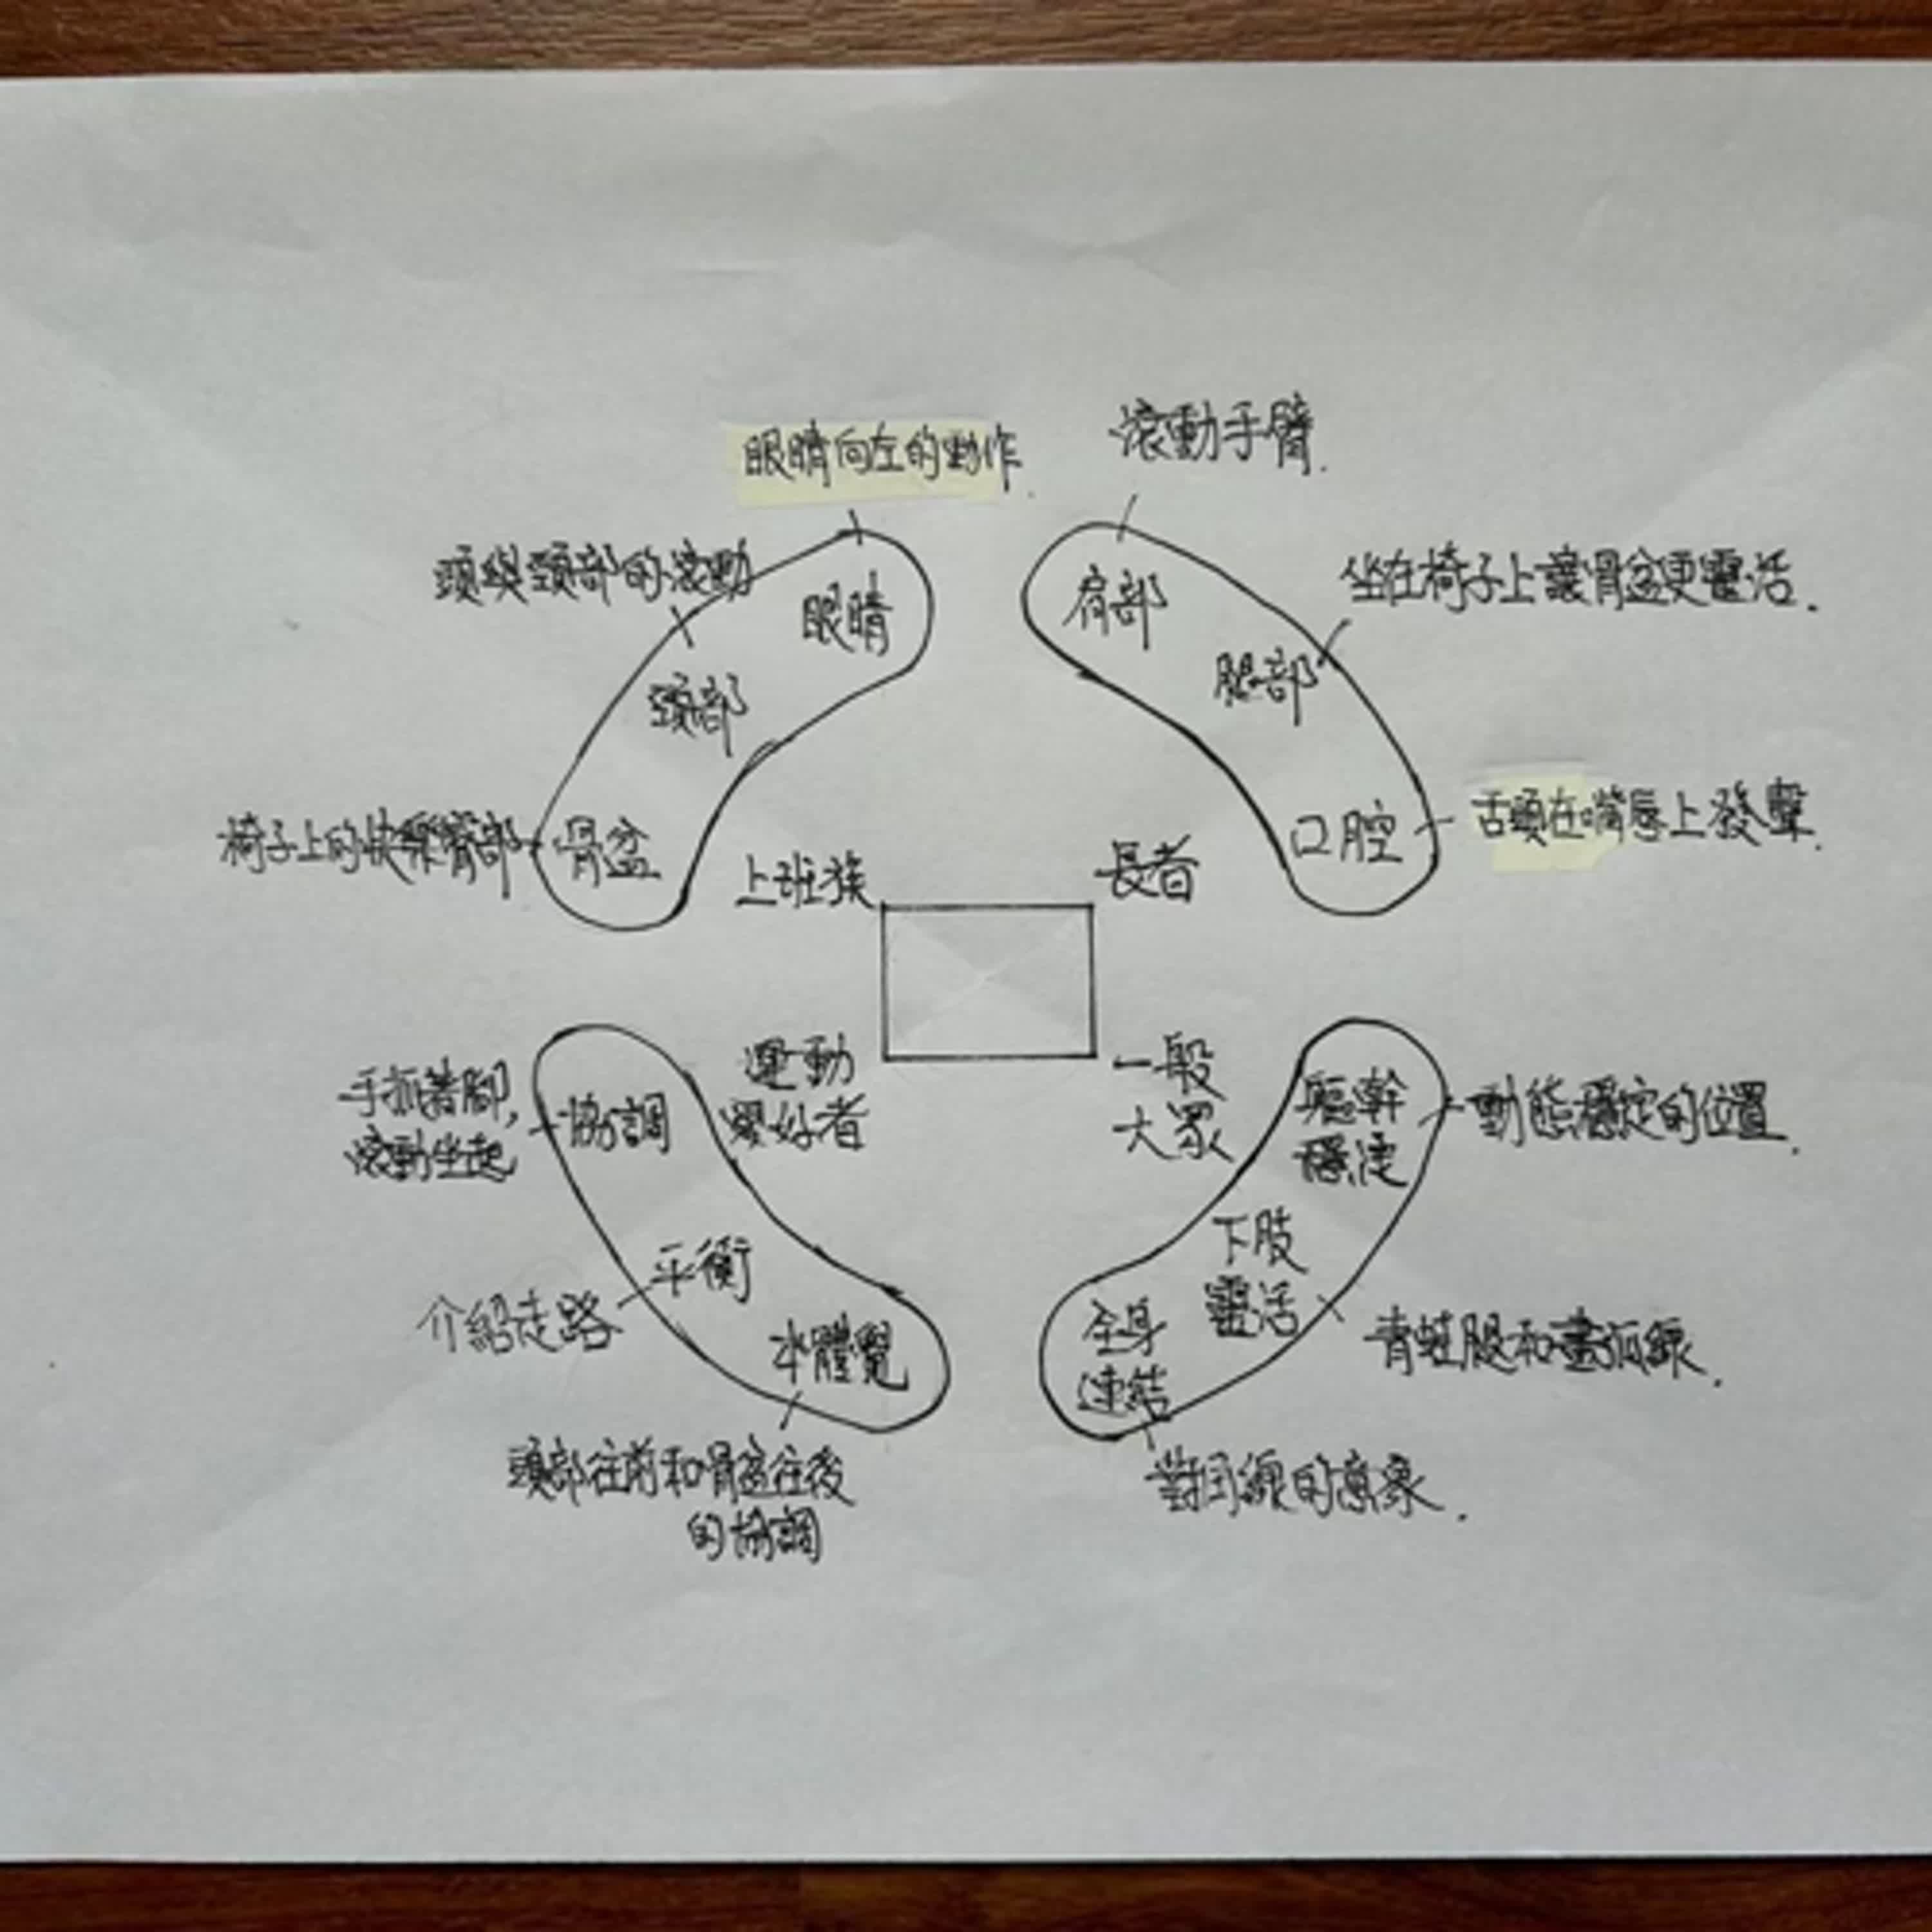 眼睛向左的動作.
滾動手臂.
頭與頸部的滾動
坐在椅子上讓骨盆更靈活.
眼睛
肩部
頸部
腿部
椅子上的快樂臀部
骨盆
口腔
舌頭在嘴唇上發聲.
上班族
長者
手抓著腳,
滾動坐起
協調
運動
愛好者
一般
大眾
軀幹
穩定
動態穩定的位置.
平衡
介紹走路
下肢
靈活
青蛙腿和畫弧線.
本體覺
全身
連結
頭部往前和骨盆往後
的協調
對角線的意象.